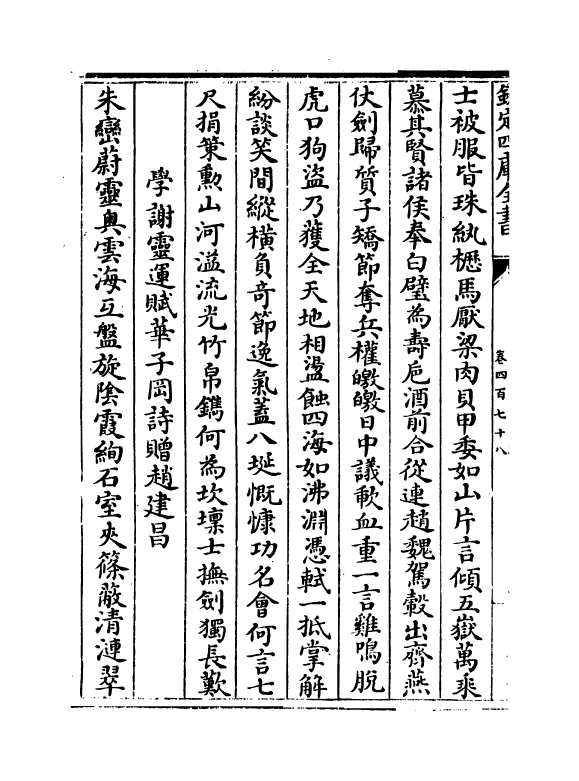 欽定四庫全書
卷四百七十八
士被服皆珠紈櫪馬厭粱肉貝甲委如山片言傾五嶽萬乘
慕其賢諸侯奉白璧為壽巵酒前合從連趙魏駕轂出齊燕
仗劍歸質子矯節奪兵權皦皦日中議歃血重一言雞鳴脫
虎口狗盜乃獲全天地相盪蝕四海如沸淵憑軾一抵掌解
紛談笑間縱橫負奇節逸氣蓋八埏慨慷功名會何言七
尺捐䇿勲山河溢流光竹帛鐫何為坎壈士撫劍獨長歎
學謝靈運賦華子岡詩贈趙建昌
朱巒蔚靈奥雲海互盤旋陰霞絢石室夾篠蔽清漣翠